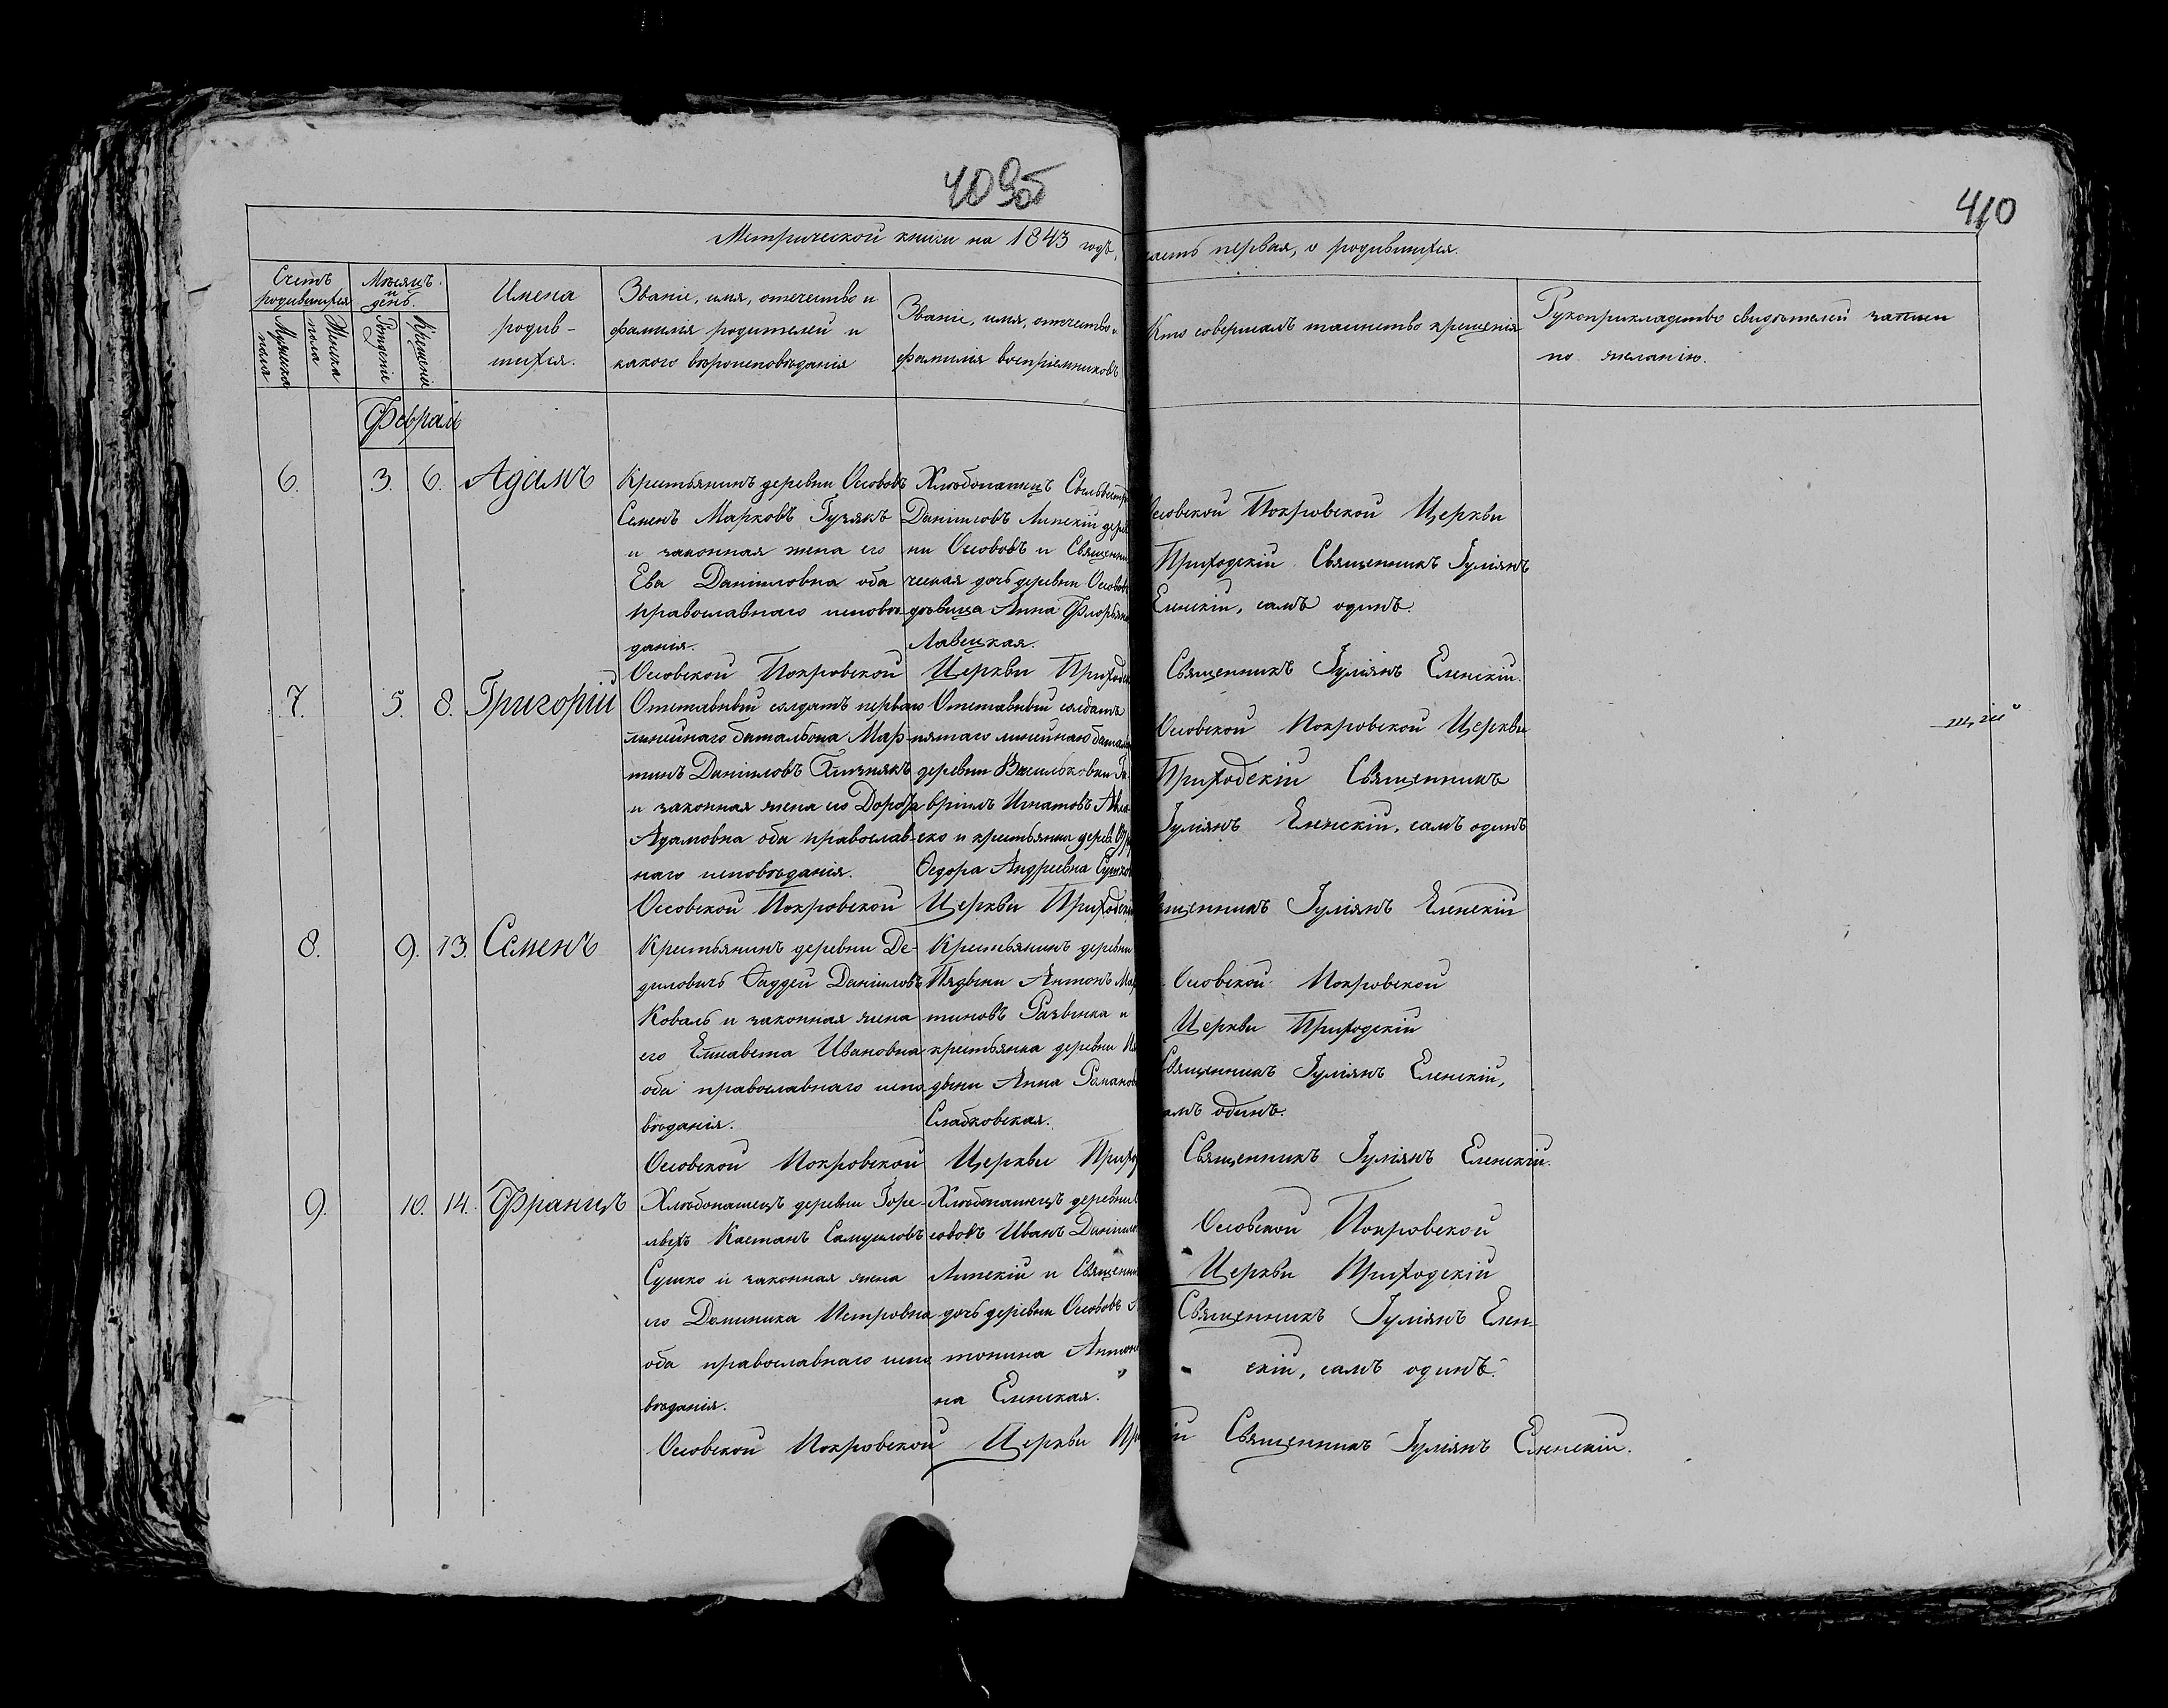 409об
410
Метрической книги на 1843 годъ,
часть первая, о родившихся.
Счетъ родившихся
Мужеска пола
Женска пола
Мѣсяцъ и день.
Рожденіе
Крещеніе
Имена родив-
шихся.
Званіе, имя, отчество и
фамилія родителей и
какого вѣроисповѣданія
Званіе, имя, отчество и
фамилія воспріемниковъ
Кто совершалъ таинство крещенія
Рукоприкладство свидѣтелей записи
по желанію.
Февраль
6. 3. 6. Адамъ
Крестьянинъ деревни Осововъ
Семенъ Марковъ Гузякъ
и законная жена его
Ева Даніиловна оба
православнаго исповѣ-
данія.
Хлѣбопашецъ Сильвестръ
Даніиловъ Липскій дерев
ни Осововъ и Священни
ческая дочь деревни Осововъ
дѣвица Анна Флорьян
Лавецкая.
Осовской Покровской Церкви
Приходскій Священникъ Іуліянъ
Еленскій, самъ одинъ.
Осовской Покровской Церкви Приходск Священникъ Іуліянъ Еленскій.
7. 5. 8. Григорій
Отставный солдатъ перваго
линейнаго баталіона Мар-
тинъ Даніиловъ
и законная жена его
Адамовна оба православ-
наго исповѣданія.
Отставный солдатъ
пятаго линейнаго батал
деревни Васильковки Га
вріилъ Игнатовъ
ско и крестьянка дерев.
Ѳедора Андреевна Сушко
Осовской Покровской Церкви
Приходскій Священникъ
Іуліянъ Еленскій, самъ одинъ
Осовской Покровской Церкви Приходскі Священникъ Іуліянъ Еленскій
8. 9. 13. Семенъ
Крестьянинъ деревни Де-
диловичь Ѳаддей Даніиловъ
Коваль и законная жена
его Елисавета Ивановна
оба православнаго испо
вѣданія.
Крестьянинъ деревни
Пядыни Антонъ Мар
тиновъ Разванка и
крестьянка деревни Пя
дыни Анна Романов
Слабковская.
Осовской Покровской
Церкви Приходскій
Священникъ Іуліянъ Еленскій,
самъ одинъ.
Осовской Покровской Церкви Приход Священникъ Іуліянъ Еленскій.
9. 10. 14. Францъ
Хлѣбопашецъ деревни Горе-
лѣехъ Каетанъ Самуиловъ
Сушко и законная жена
его Доминика Петровна
оба православнаго испо
вѣданія.
Хлѣбопашецъ деревни О
сововъ Иванъ Даніилов
Липскій и Священни
дочь деревни Осововъ А
тонина Антонов
на Еленская.
Осовской Покровской
Церкви Приходскій
Священникъ Іуліянъ Елен-
скій, самъ одинъ.
Осовской Покровской Церкви При ій Священникъ Іуліянъ Еленскій.